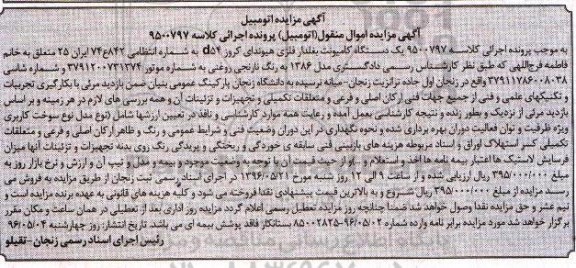 آگهی مزایده اتومبیل
آگهی مزایده اموال منقول(اتومبیل) پرونده اجرائی کلاسه ۹۵۰۰۷۹۷
به موجب پرونده اجرائی کلاسه ۹۵۰۰۷۹۷ یک دستگاه کامیونت یخچالدار فلزی هیوندای کروز d۵۴ به شماره انتظامی ۸۴۲ع۷۴ ایران ۲۵ متعلق به خانم
فاطمه فرج‌اللهی که طبق نظر کارشناس رسمی دادگستری مدل ۱۳۸۶ به رنگ نارنجی روغنی به شماره موتور ۳۷۹۱۲۰۰۷۳۱۳۷۴ و شماره شاسی
۳۷۹۱۱۷۸۶۰۰۸۰۳۸ واقع در زنجان اول جاده ترانزیت زنجان نرسیده به دانشگاه زنجان پارکینگ عمومی بنیان ضمن بازدید مرئی با بکارگیری تجربیات
و تکنیکهای علمی و فنی از جمیع جهات فنی ارکان اصلی و فرعی و متعلقات تکمیلی و تجهیزات و تزئینات آن و همه بررسی های لازم در هر زمینه و بر اساس
بازدید مرئی از نزدیک و بطور زنده و نتیجه کارشناسی بعمل آمده و رعایت همه موارد کارشناسی و نافذ در تعیین ارزشها شامل (نوع مدل نوع سوخت کاربری
ویژه ظرفیت و توان فعالیت دوران بهره برداری شده و نحوه نگهداری در این دوران وضعیت فنی و شرایط عمومی و رنگ و ظاهر ارکان اصلی و فرعی و متعلقات
تکمیلی کسر استهلاک اوراق و اسناد مربوطه هزینه های بازبینی فنی سابقه ی خوردگی و ریختگی و پریدگی رنگ روی بدنه تجهیزات و تزئینات آنها میزان
فرسایش لاستیک ها اعتبار بیمه نامه ها اخذ و استعلام و لوازم از حیث قیمت آن با توجه به وضعیت موجود و بیمه و مدل و تیپ آن و ارزش و نرخ بازار روز به
مبلغ ۳۹۵/۰۰۰/۰۰۰ ریال ارزیابی شده و از ساعت ۹ الی ۱۲ روز شنبه مورخ ۱۳۹۶/۰۵/۲۱ در اجرای اسناد رسمی ثبت زنجان از طریق مزایده به فروش می
رسد مزایده از مبلغ ۳۹۵/۰۰۰/۰۰۰ ریال شروع و به بالاترین قیمت پیشنهادی نقدا فروخته می شود و کلیه هزینه های قانونی به عهده برنده مزایده است و
نیم عشر و حق مزایده نقدا وصول خواهد شد ضمنا چنانچه روز مزایده تعطیل رسمی اعلام گردد مزایده روز اداری بعد از تعطیلی در همان ساعت و مکان مقرر
برگزار خواهد شد مورد مزایده برابر نامه وارده شماره ۸۵۰۰۰۲۸۲۵-۹۶/۰۵/۰۲ بستانکار فاقد پوشش بیمه ای می باشد. تاریخ انتشار: روز چهارشنبه ۹۶/۰۵/۰۴
رئیس اجرای اسناد رسمی زنجان - تقیلو